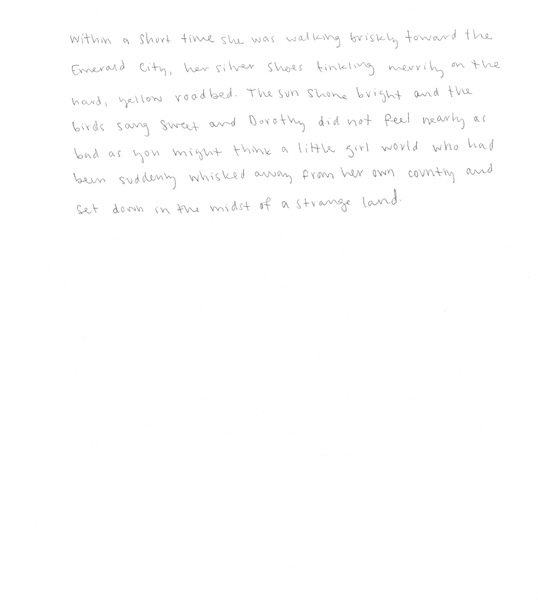 Within a short time she was walking briskly toward the
Emerald City, her silver shoes tinkling merrily on the
hard, yellow roadbed. The sun shone bright and the
birds sang sweet and Dorothy did not feel nearly as
bad as you might think a little girl world who had
been suddenly whisked away from her own country and
set down in the midst of a strange land.